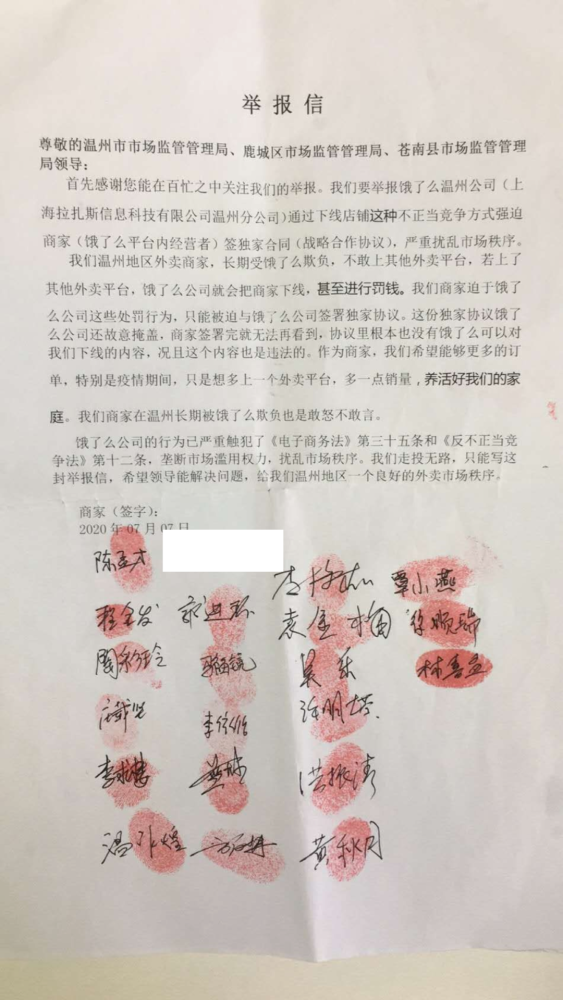 举报信
尊敬的温州市市场监管管理局、鹿城区市场监管管理局、苍南县市场监管管理
局领导：
首先感谢您能在百忙之中关注我们的举报。我们要举报饿了么温州公司（上
海拉扎斯信息科技有限公司温州分公司）通过下线店铺这种不正当竞争方式强迫
商家（饿了么平台内经营者）签独家合同（战略合作协议），严重扰乱市场秩序。
我们温州地区外卖商家，长期受饿了么欺负，不敢上其他外卖平台，若上了
其他外卖平台，饿了么公司就会把商家下线，甚至进行罚钱。我们商家迫于饿了
么公司这些处罚行为，只能被迫与饿了么公司签署独家协议。这份独家协议饿了
么公司还故意掩盖，商家签署完就无法再看到，协议里根本也没有饿了么可以对
我们下线的内容，况且这个内容也是违法的。作为商家，我们希望能够更多的订
单，特别是疫情期间，只是想多上一个外卖平台，多一点销量，养活好我们的家
庭。我们商家在温州长期被饿了么欺负也是敢怒不敢言。
饿了么公司的行为已严重触犯了《电子商务法》第三十五条和《反不正当竞
争法》第十二条，垄断市场滥用权力，扰乱市场秩序。我们走投无路，只能写这
封举报信，希望领导能解决问题，给我们温州地区一个良好的外卖市场秩序。
商家（签字）：
2020年07月07日
覃小燕
袁金梅
洪振涛
黄秋月